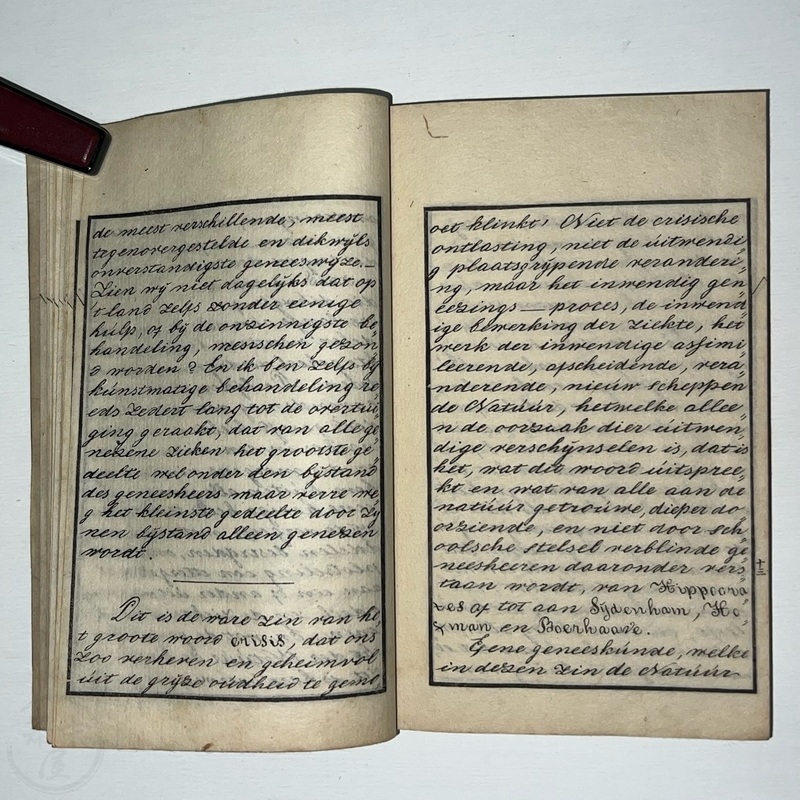 de meest verschillende, meest
tegenovergestelde en dikwijls
onverstandigste geneeswijze.—
Zien wij niet dagelijks dat op
't land zelfs zonder eenige
hulp, of bij de onzinnigste be„
handeling, menschen gezon
d worden? En ik ben zelfs bij
kúnstmatige behandeling re
eds zedert lang tot de overtúi„
ging geraakt, dat van alle ge„
nezene zieken het grootste ge„
deelte wel onder den bijstand
des geneesheers maar verre we„
g het kleinste gedeelte door zij
nen bijstand alleen genezen
wordt.
Dit is de ware zin van he„
t groote woord crisis, dat ons
zoo verheven en geheimvol
úit de grijze oúdheid te gemo
oet klinkt! Niet de crisische
ontlasting, niet de úitwendi„
g plaatsgrijpende veranderi„
ng, maar het inwendig gen„
eezings — proces, de inwend„
ige bewerking der ziekte, het
werk der inwendige assimi„
leerende, afscheidende, vera„
nderende, nieúw scheppen
de Natúúr, hetwelke allee„
n de oorzaak dier úitwen„
dige verschijnselen is, dat is
het, wat dit woord úitspree„
kt en wat van alle aan de
natúúr getroúwe, dieper do
orziende, en niet door sch„
oolsche stelsel verblinde ge„
neesheeren daaronder vers„
taan wordt, van Hippocra„
tes af tot aan Sijdenham, Ho„
fman en Boerhaave.
Gene geneeskúnde, welke
in dezen zin de Natúúr
十三